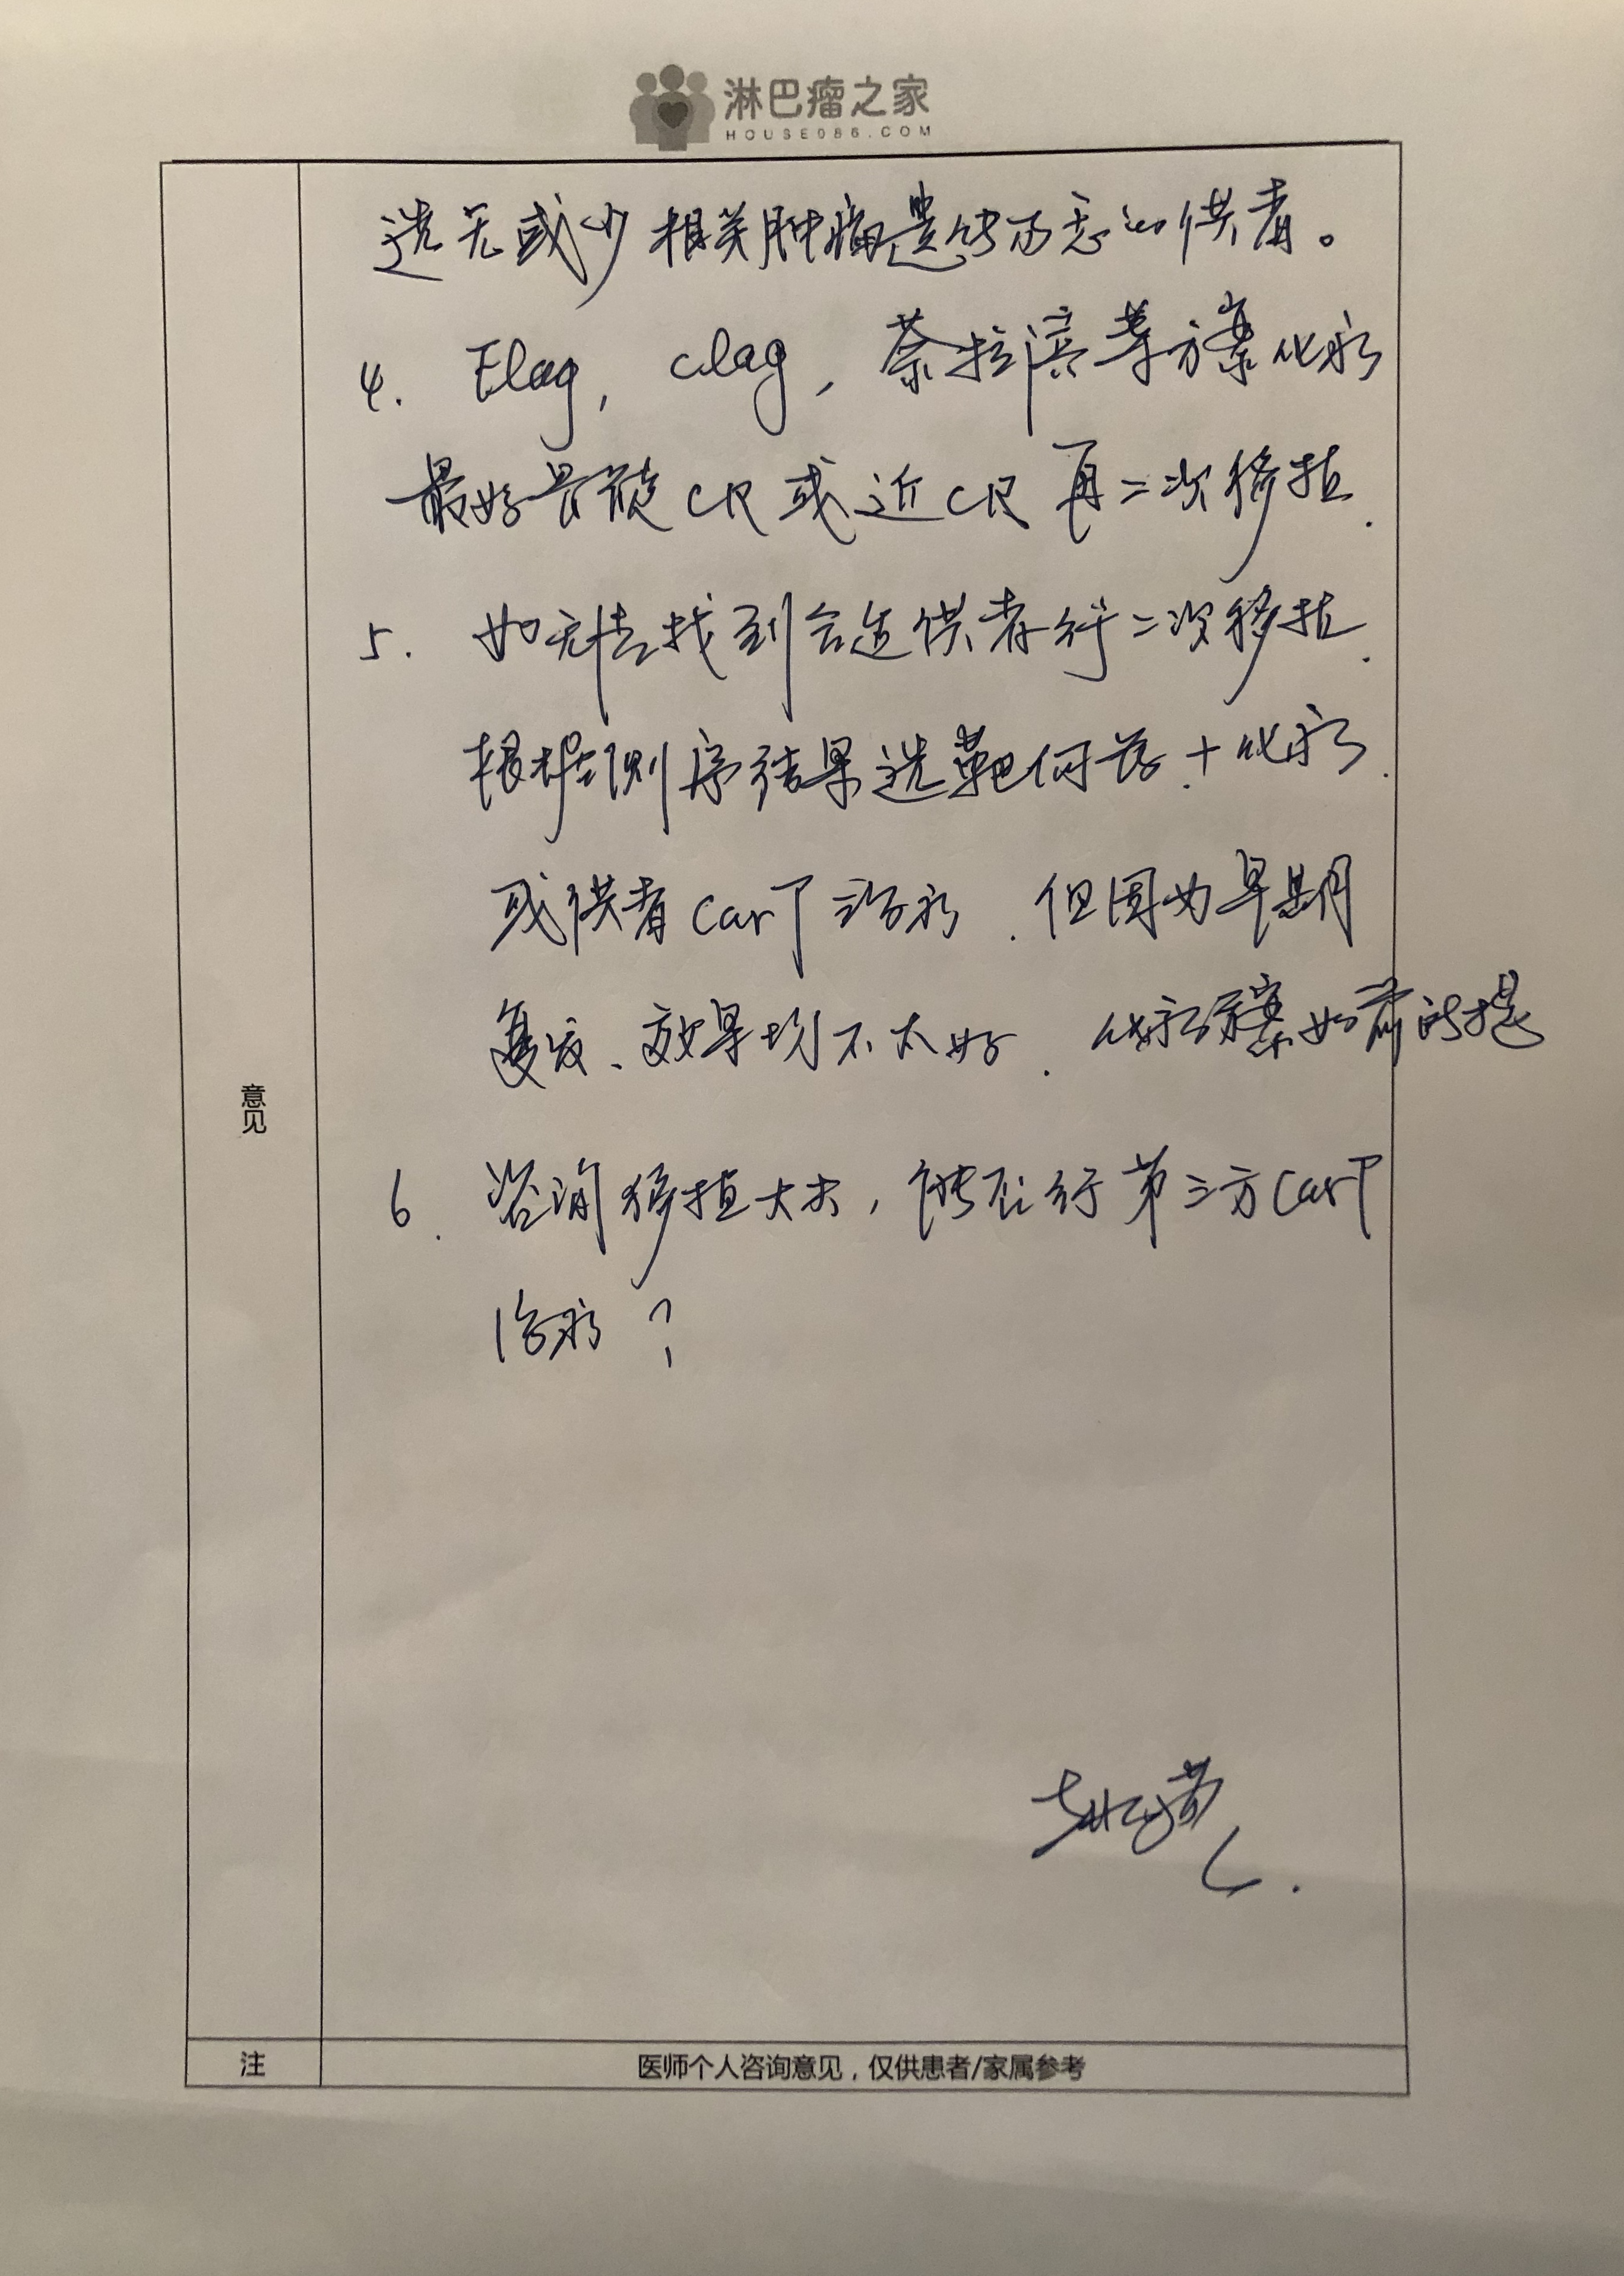 淋巴瘤之家
HOUSE086.COM
选无或少相关肿瘤遗传的供者。
4. Flag, Clag, 奈拉滨等方案化疗
最好是CR或近CR再二次移植.
5. 如无法找到合适供者行二次移植.
根据测序结果选靶向药+化疗.
或供者CarT治疗.但因为早期
复发、效果均不太好.化疗方案如前所提
6. 咨询移植大夫,能否行第三方CarT
治疗?
意见
注
医师个人咨询意见,仅供患者/家属参考